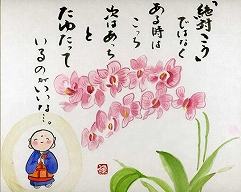 「絶対こう」
ではなく
ある時は
こっち
次はあっち
と
たゆたって
いるのがいいな…。